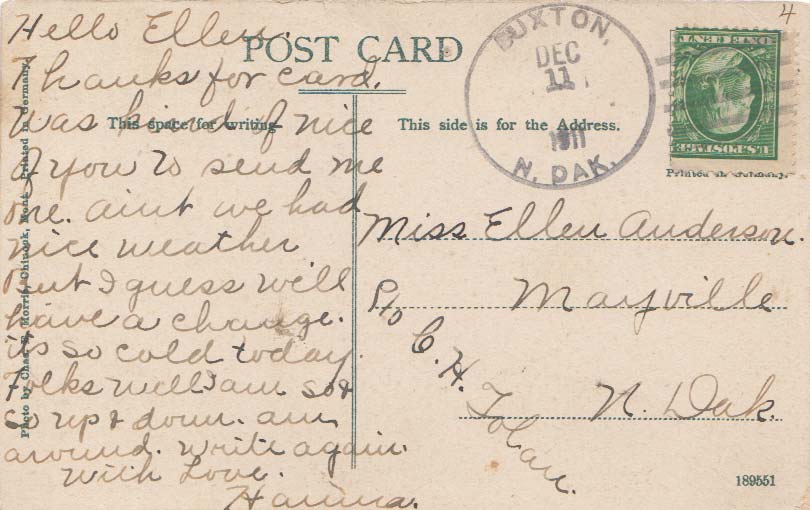 4
Hello Ellen.
POST CARD
Thanks for card.
Was kind of nice
of you to send me
one. aint we had
nice weather
but I guess will
have a change.
its so cold today.
Folks well I am so &
so up & down. am
around. write again.
With Love.
Hanna.
This space for writing
This side is for the Address.
BUXTON,
DEC
11
1911
N. DAK.
ONE CENT
U.S. POSTAGE
Printed in Germany.
Miss Ellen Anderson.
Mayville
N. Dak.
C. H.
Tolan.
189551
Photo by Chas. E. Morris, Chinook, Mont. Printed in Germany.